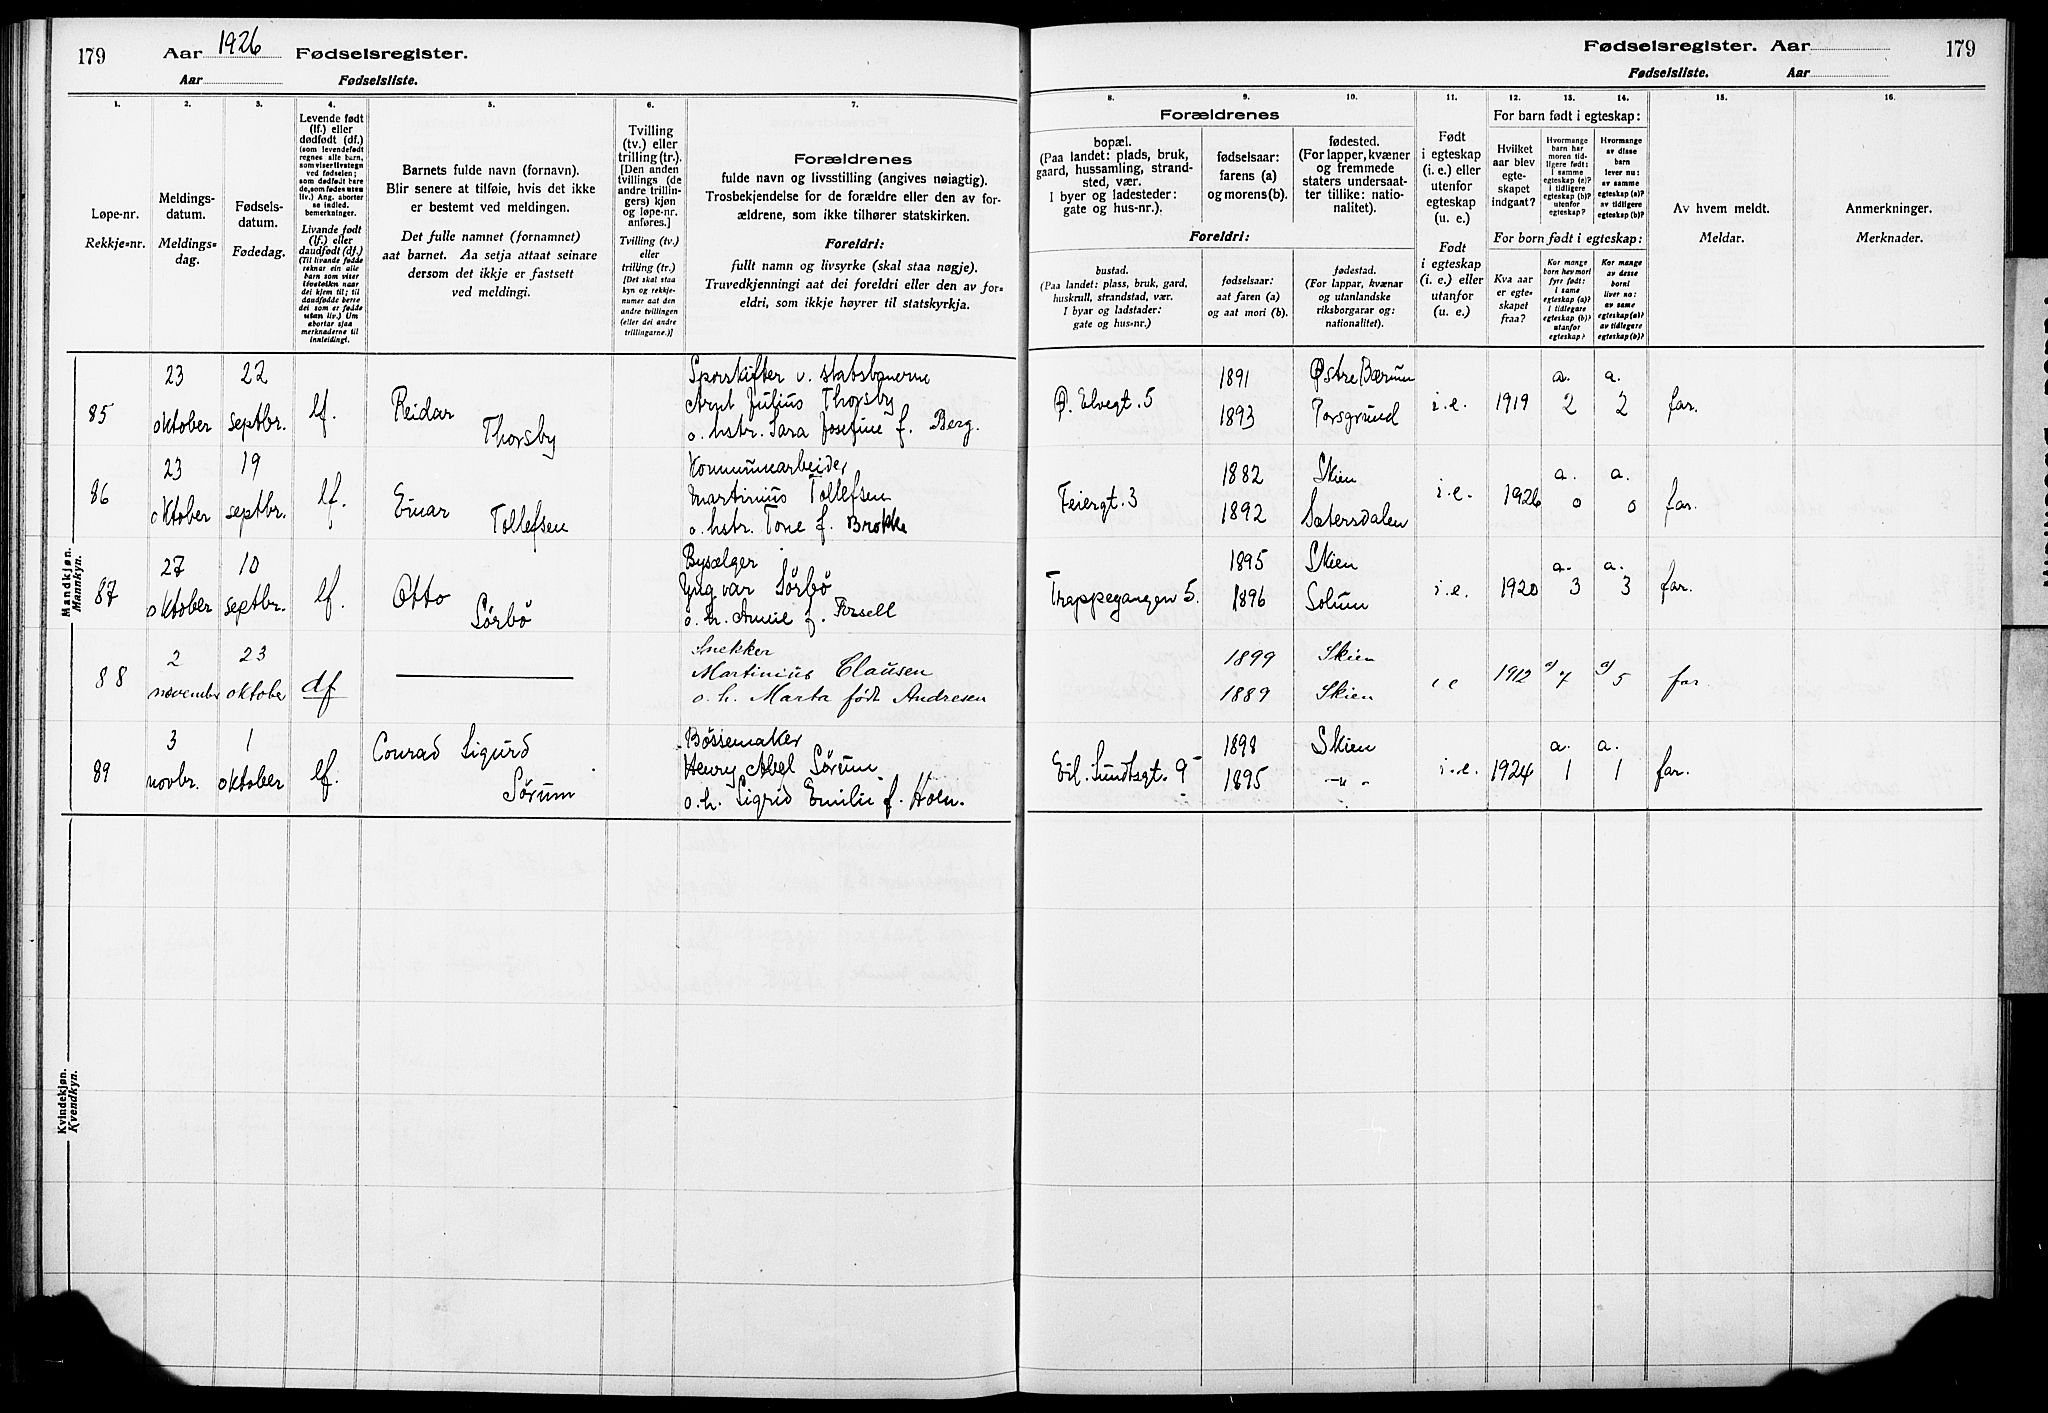 179 Aar 1926 Fødselsregister.
Aar Fødselsliste.
Fødselsregister. Aar 179
Fødselsliste. Aar
1. 2. 3. 4. 5. 6. 7.
Løpe-nr.
Rekkje-nr.
Meldings-
datum.
Meldings-
dag.
Fødsels-
datum.
Fødedag.
Levende født
(lf.) eller
dødfødt (df.)
(som levendefødt
regnes alle barn,
som viser livstegn
ved fødselen;
som dødfødt bare
de, som fødes uten
liv.) Ang. aborter
se indled.
bemerkninger.
Livande født
(lf.) eller
daudfødt (df.)
Barnets fulde navn (fornavn).
Blir senere at tilføie, hvis det ikke
er bestemt ved meldingen.
Det fulle namnet (fornamnet)
aat barnet. Aa setja attaat seinare
dersom det ikkje er fastsett
ved meldingi.
Tvilling
(tv.) eller
trilling (tr.).
[Den anden
tvillings (de
andre trillin-
gers) kjøn
og løpe-nr.
anføres.]
Tvilling (tv.)
eller
trilling (tr.)
[Det skal staa
kyn og rekkje-
numer aat den
andre tvillingen
(eller dei andre
trillingarne.)]
Forældrenes
fulde navn og livsstilling (angives nøiagtig).
Trosbekjendelse for de forældre eller den av for-
ældrene, som ikke tilhører statskirken.
Foreldri:
fullt namn og livsyrke (skal staa nøgje).
Truvedkjenningi aat dei foreldri eller den av for-
eldri, som ikkje høyrer til statskyrkja.
8. 9. 10. 11. 12. 13. 14. 15. 16.
Forældrenes
bopæl.
(Paa landet: plads, bruk,
gaard, hussamling, strand-
sted, vær.
I byer og ladesteder:
gate og hus-nr.).
fødselsaar:
farens (a)
og morens (b).
fødested.
(For lapper, kvæner
og fremmede
staters undersaat-
ter tillike: natio-
nalitet).
Foreldri:
bustad.
(Paa landet: plass, bruk, gard,
huskrull, strandstad, vær.
I byar og ladstader:
gate og hus-nr.)
fødselsaar:
aat faren (a)
og aat mori (b).
fødestad.
(For lappar, kvænar
og utanlandske
riksborgarar og:
nationalitet).
Født
i egteskap
(i. e.) eller
utenfor
egteskap
(u. e.)
Født
i egteskap
(i. e.) eller
utanfor
egteskap
(u. e.)
For barn født i egteskap:
Hvilket
aar blev
egte-
skapet
indgaat?
Hvormange
barn har
moren tid-
ligere født:
i samme
egteskap (a)?
i tidligere
egteskap (b)?
utenfor
egteskap?
Hvormange
av disse
barn
lever nu:
av samme
egteskap (a)?
av tidligere
egteskap (b)?
For born født i egteskap:
Kva aar
er egte-
skapet
fraa?
Kor mange
born hev mori
fyrr født:
i same
egteskap (a)?
i tidlegare
egteskap (b)?
utanfor
egteskap?
Kor mange
av desse
borni
liver no:
av same
egteskap (a)?
av tidlegare
egteskap (b)?
Av hvem meldt.
Meldar.
Anmerkninger.
Merknader.
Mandkjøn.
Mannkyn.
85 23 oktober 22 septbr. lf. Reidar Thorsby
Sporskifter v. statsbanerne
Arnt Julius Thorsby
o. hstr. Sara Josefine f. Berg.
Ø. Elvegt. 5 1891 Østre Bærum 1893 Porsgrund i.e. 1919 a. 2 a. 2 far.
86 23 oktober 19 septbr. lf. Einar Tollefsen
Kommunearbeider
Martinius Tollefsen
o. hstr. Tone f. Brokke
Feiergt. 3 1882 Skien 1892 Sætersdalen i.e. 1926 a. 0 a. 0 far.
87 27 oktober 10 septbr. lf. Otto Sørbø
Bysælger
Yngvar Sørbø
o. h. Amie f. Forsell
Trappegangen 5. 1895 Skien 1896 Solum i.e. 1920 a. 3 a. 3 far.
88 2 november 23 oktober df
Snekker
Martinius Clausen
o. h. Marta født Andresen
1899 Skien 1889 Skien i e 1912 a/ 7 a/ 5 far.
89 3 novbr. 1 oktober lf. Conrad Sigurd Sørum
Bøssemaker
Henry Abel Sørum
o. h. Sigrid Emilie f. Holm.
Eil. Sundtsgt. 9 1898 Skien 1895 -"- i.e. 1924 a. 1 a. 1 far.
Kvindekjøn.
Kvendkyn.